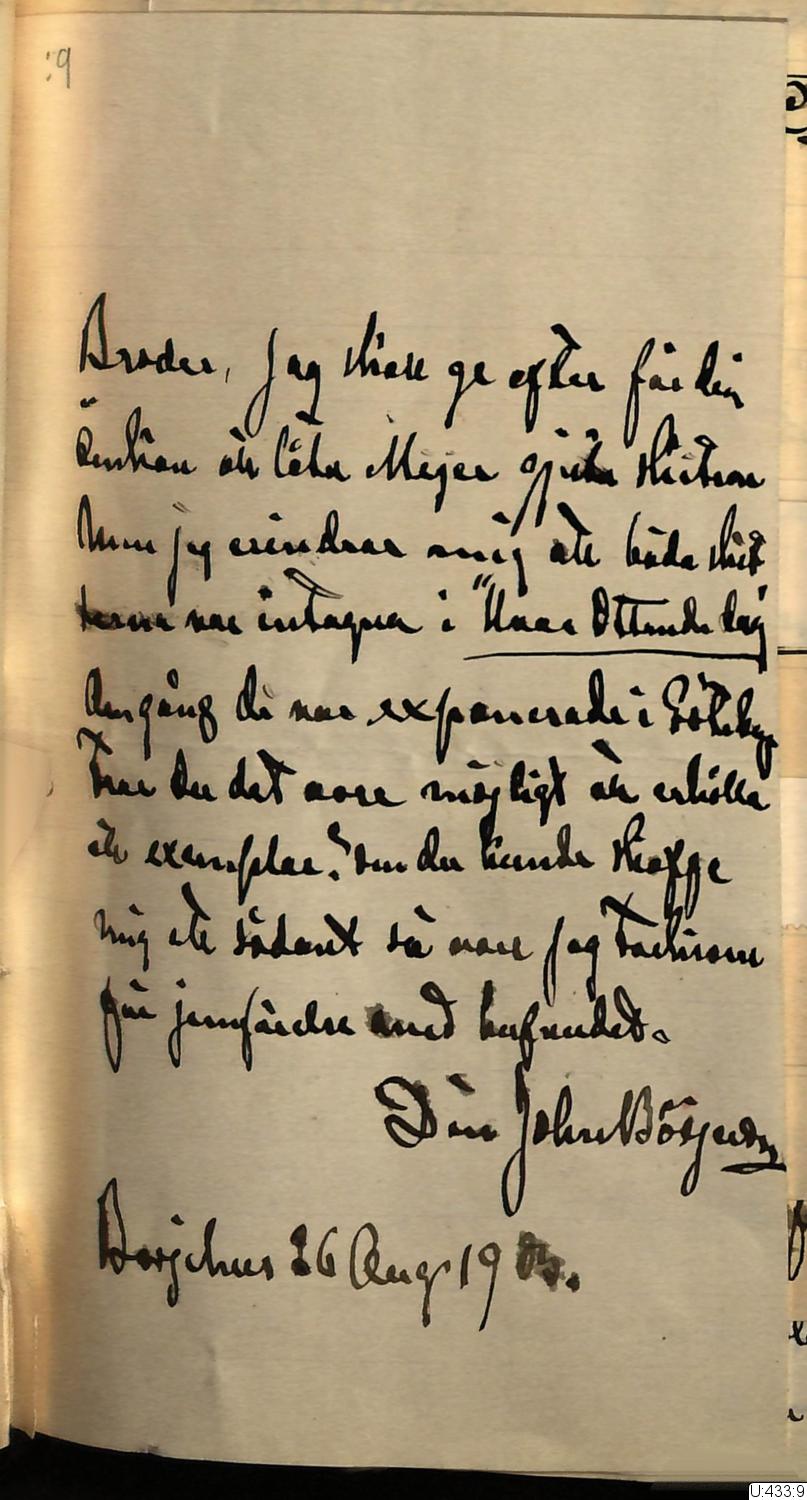 :9
Broder, Jag skall ge efter för din
önskan att låta Meyer gjuta skisserna
Men jag erindrar mig att båda skis
serna var intagna i "Hvar Ottende dag"
den gång de var exponerade i Göteborg
Tror du det vore möjligt att erhålla
ett exemplar? om du kunde skaffe
mig ett sådant så vore Jag tacksam
för jemförelse med
Din John Börjeson
Börjehus 26 Aug 19
U:433:9